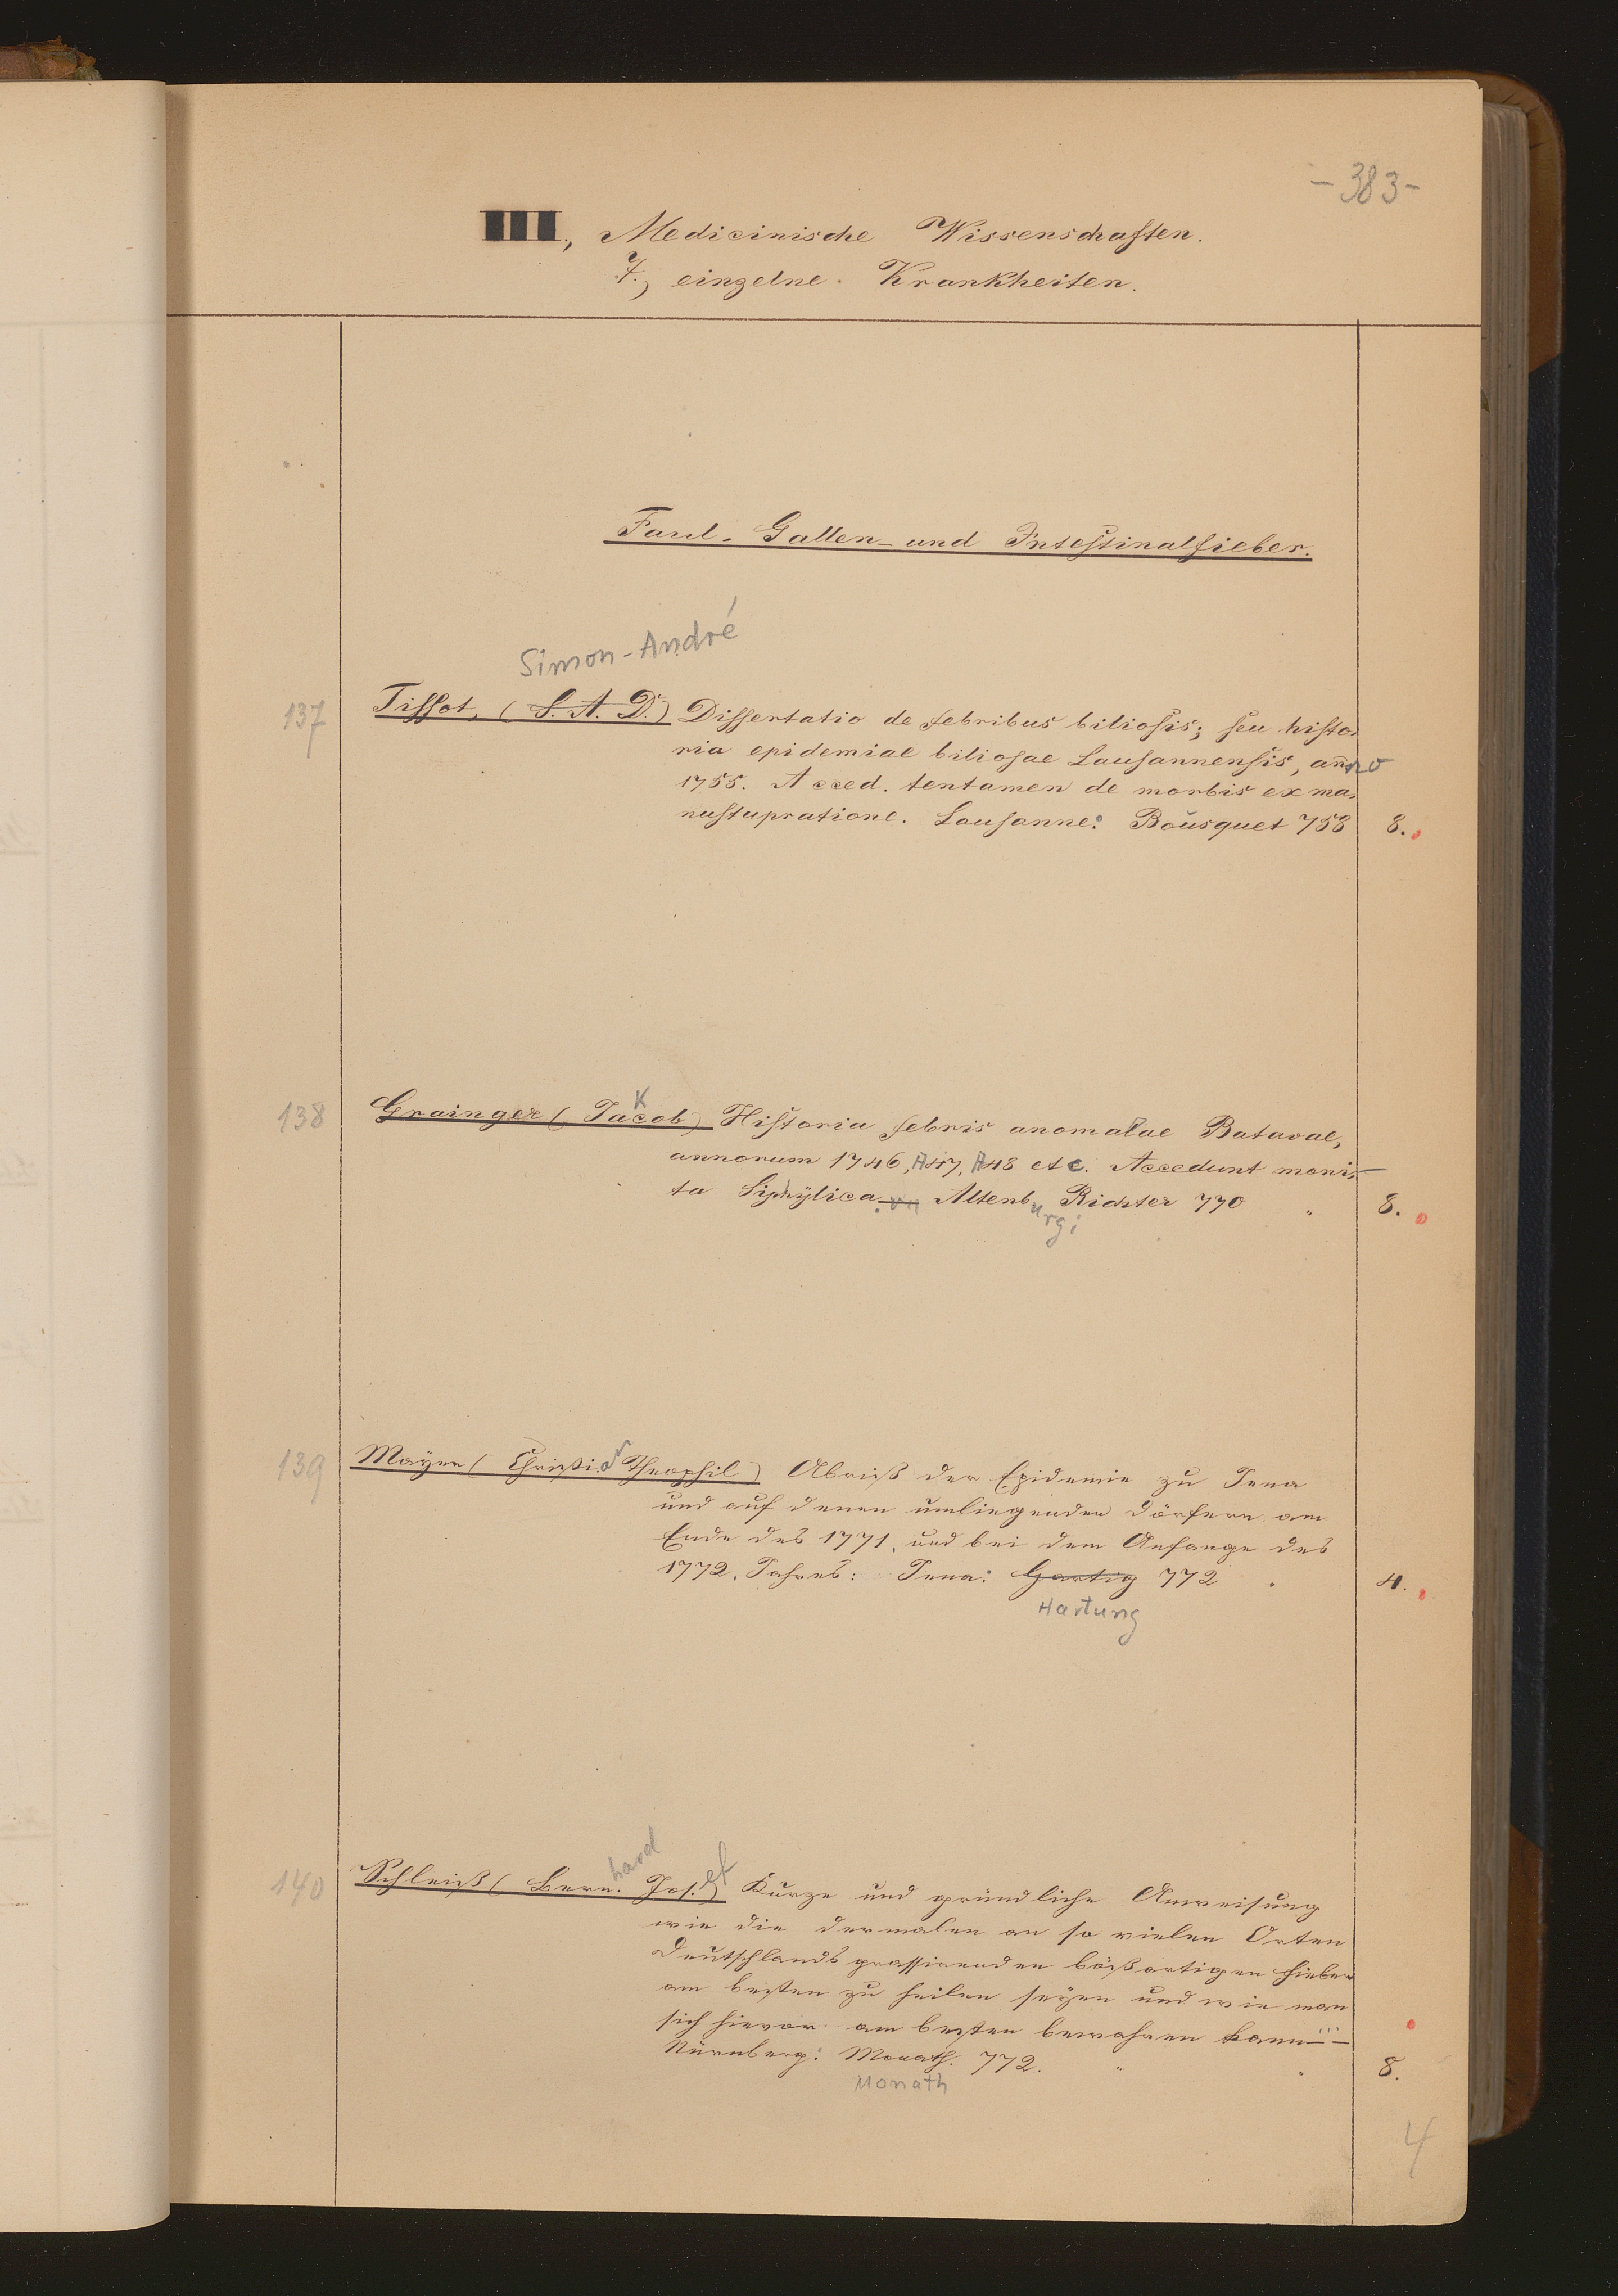 -383-
III, Medicinische Wissenschaften.
7., einzelne Krankheiten.
Faul- Gallen- und Intestinalfieber.
Simon-André
137 Tissot, (S. A. D.) Dissertatio de febribus biliosis; seu histo-
ria epidemiae biliosae Lausannensis, anno
1755. Acced. tentamen de morbis ex ma-
nustupratione. Lausanne: Bousquet 758 8.
K
138 Grainger (Jacob) Historia febris anomalae Batavae,
annorum 1746, 47, 48 etc. Accedunt moni-
ta Siphylica Altenburgi Richter 770 " 8.
139 Mayer (Christian Theophil) Abriß der Epidemie zu Jena
und auf denen umliegenden Dörfern am
Ende des 1771, und bei dem Anfange des
1772. Jahres: Jena: Gartig 772 " 4.
Hartung
140 Schleiß (Bernhard Josef) Kurze und gründliche Anweisung
wie die dermalen an so vielen Orten
Deutschlands grassirenden bößartigen Fieber
am besten zu heilen seyen und wie man
sich hievor am besten bewahren kann
Nürnberg: Monath. 772. " " 8.
Monath
4